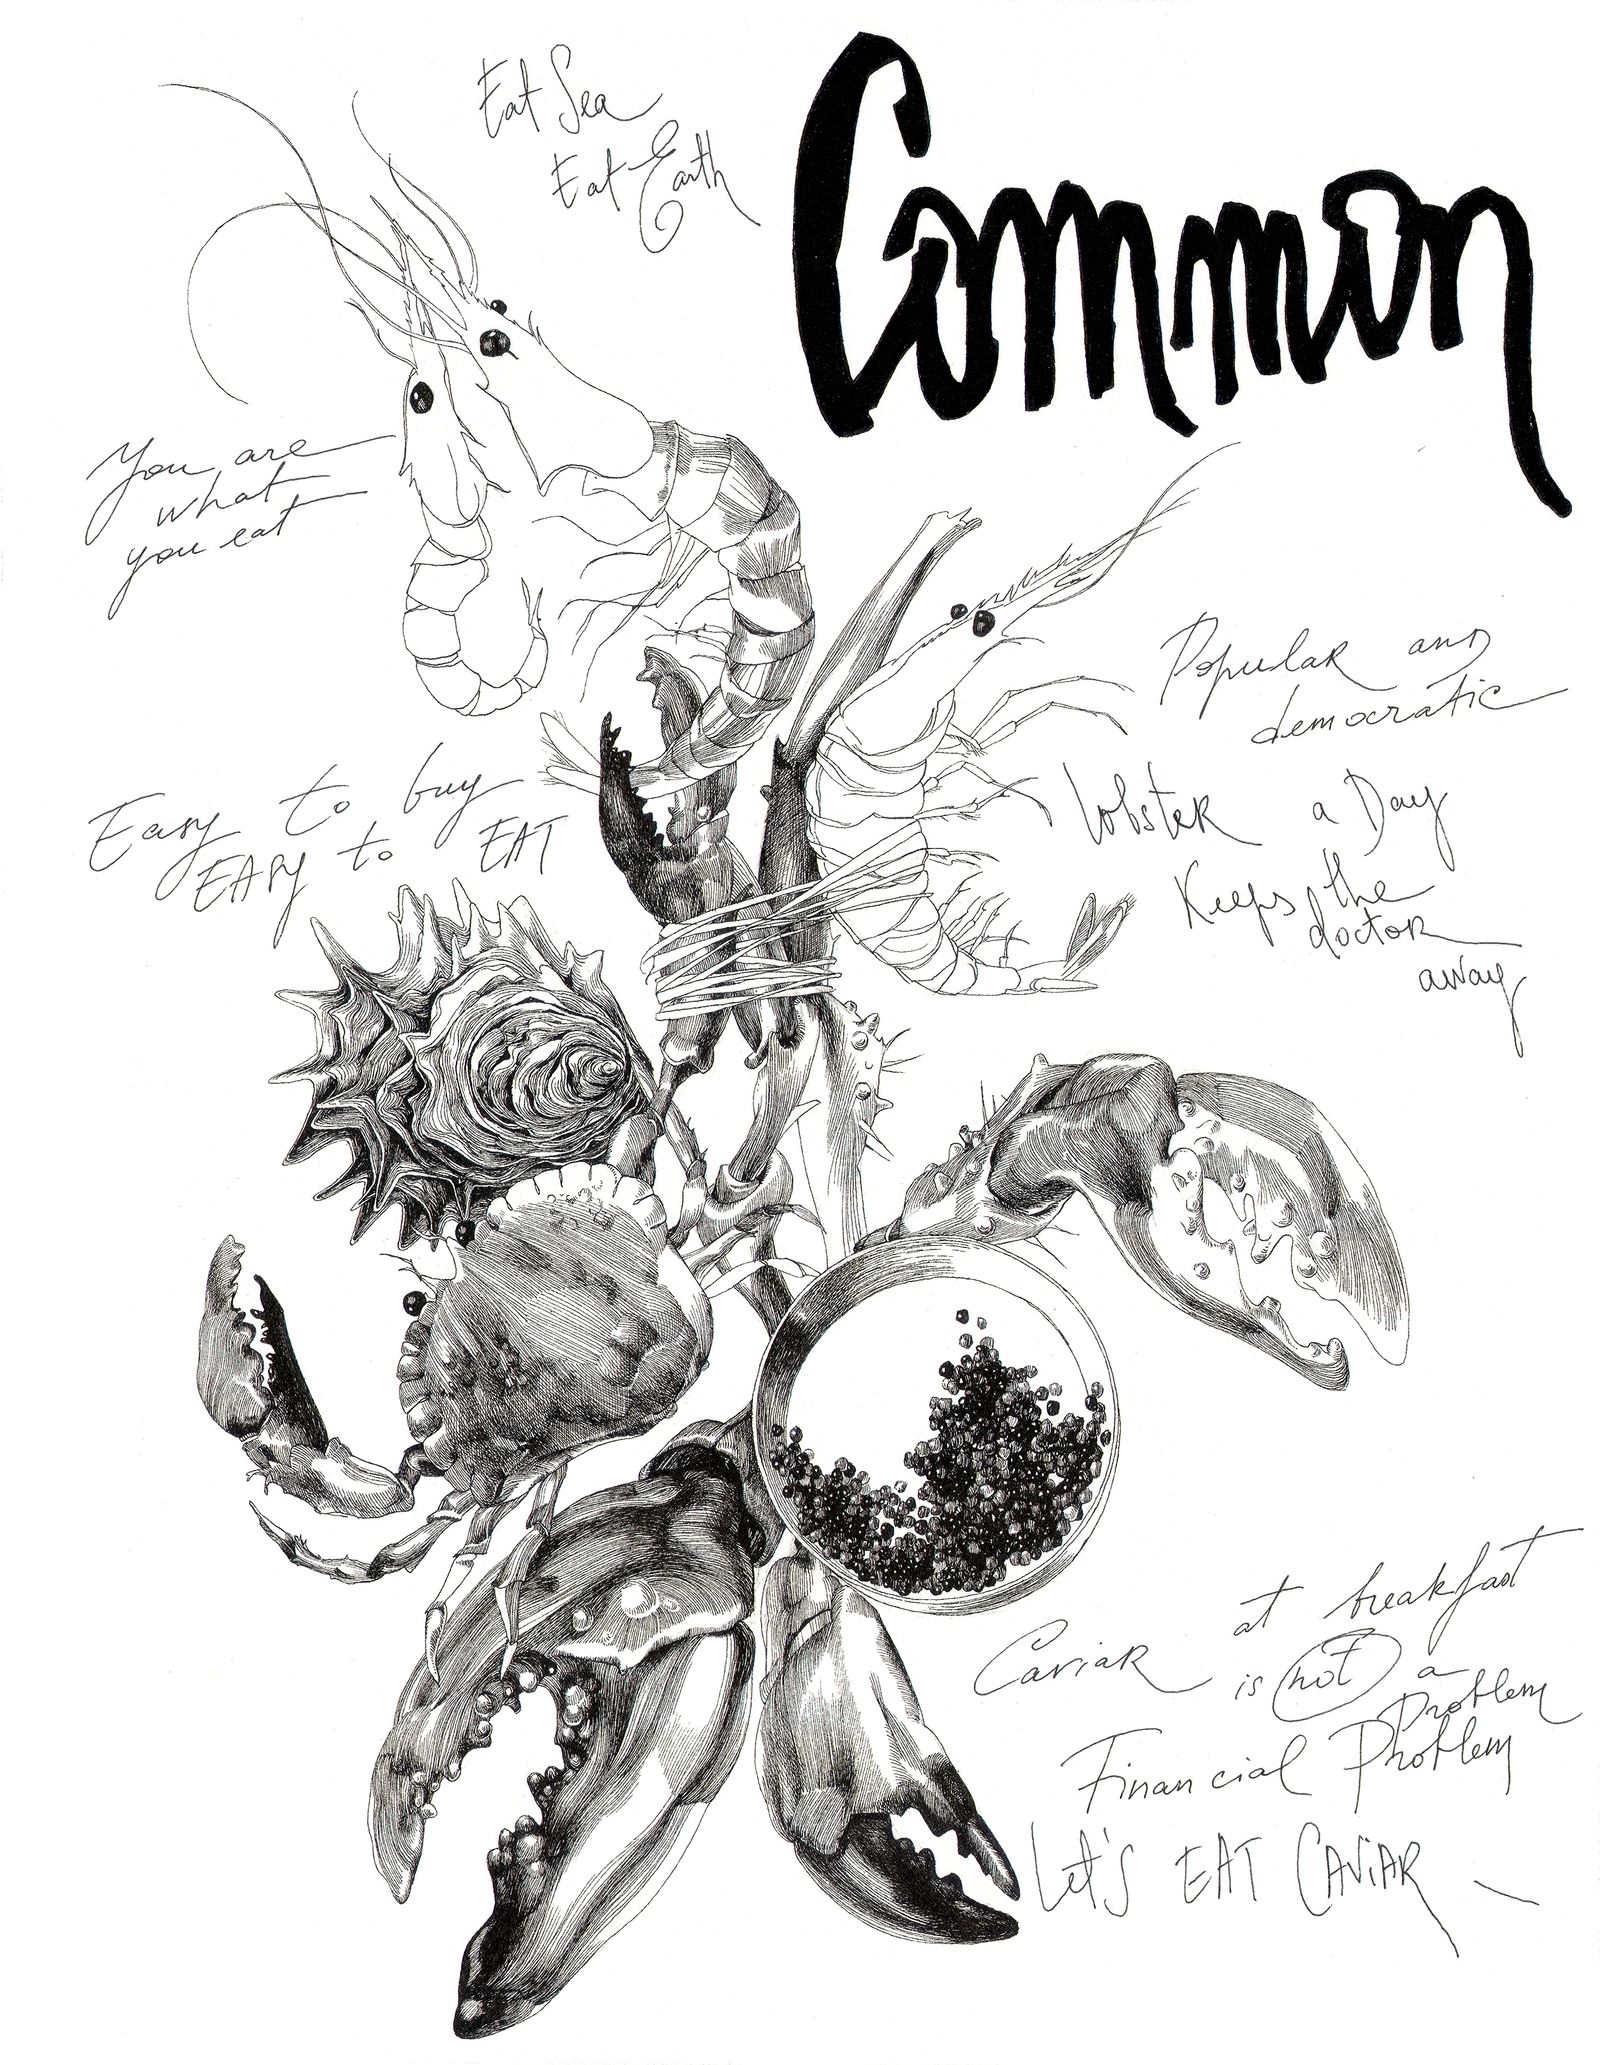 Common
Eat Sea
Eat Earth
You are
what
you eat
Popular and
democratic
Easy to buy
EASY to EAT
lobster a Day
Keeps the
doctor
away
Caviar at breakfast
is not a
problem
Financial Problem
Let's EAT CAViAR